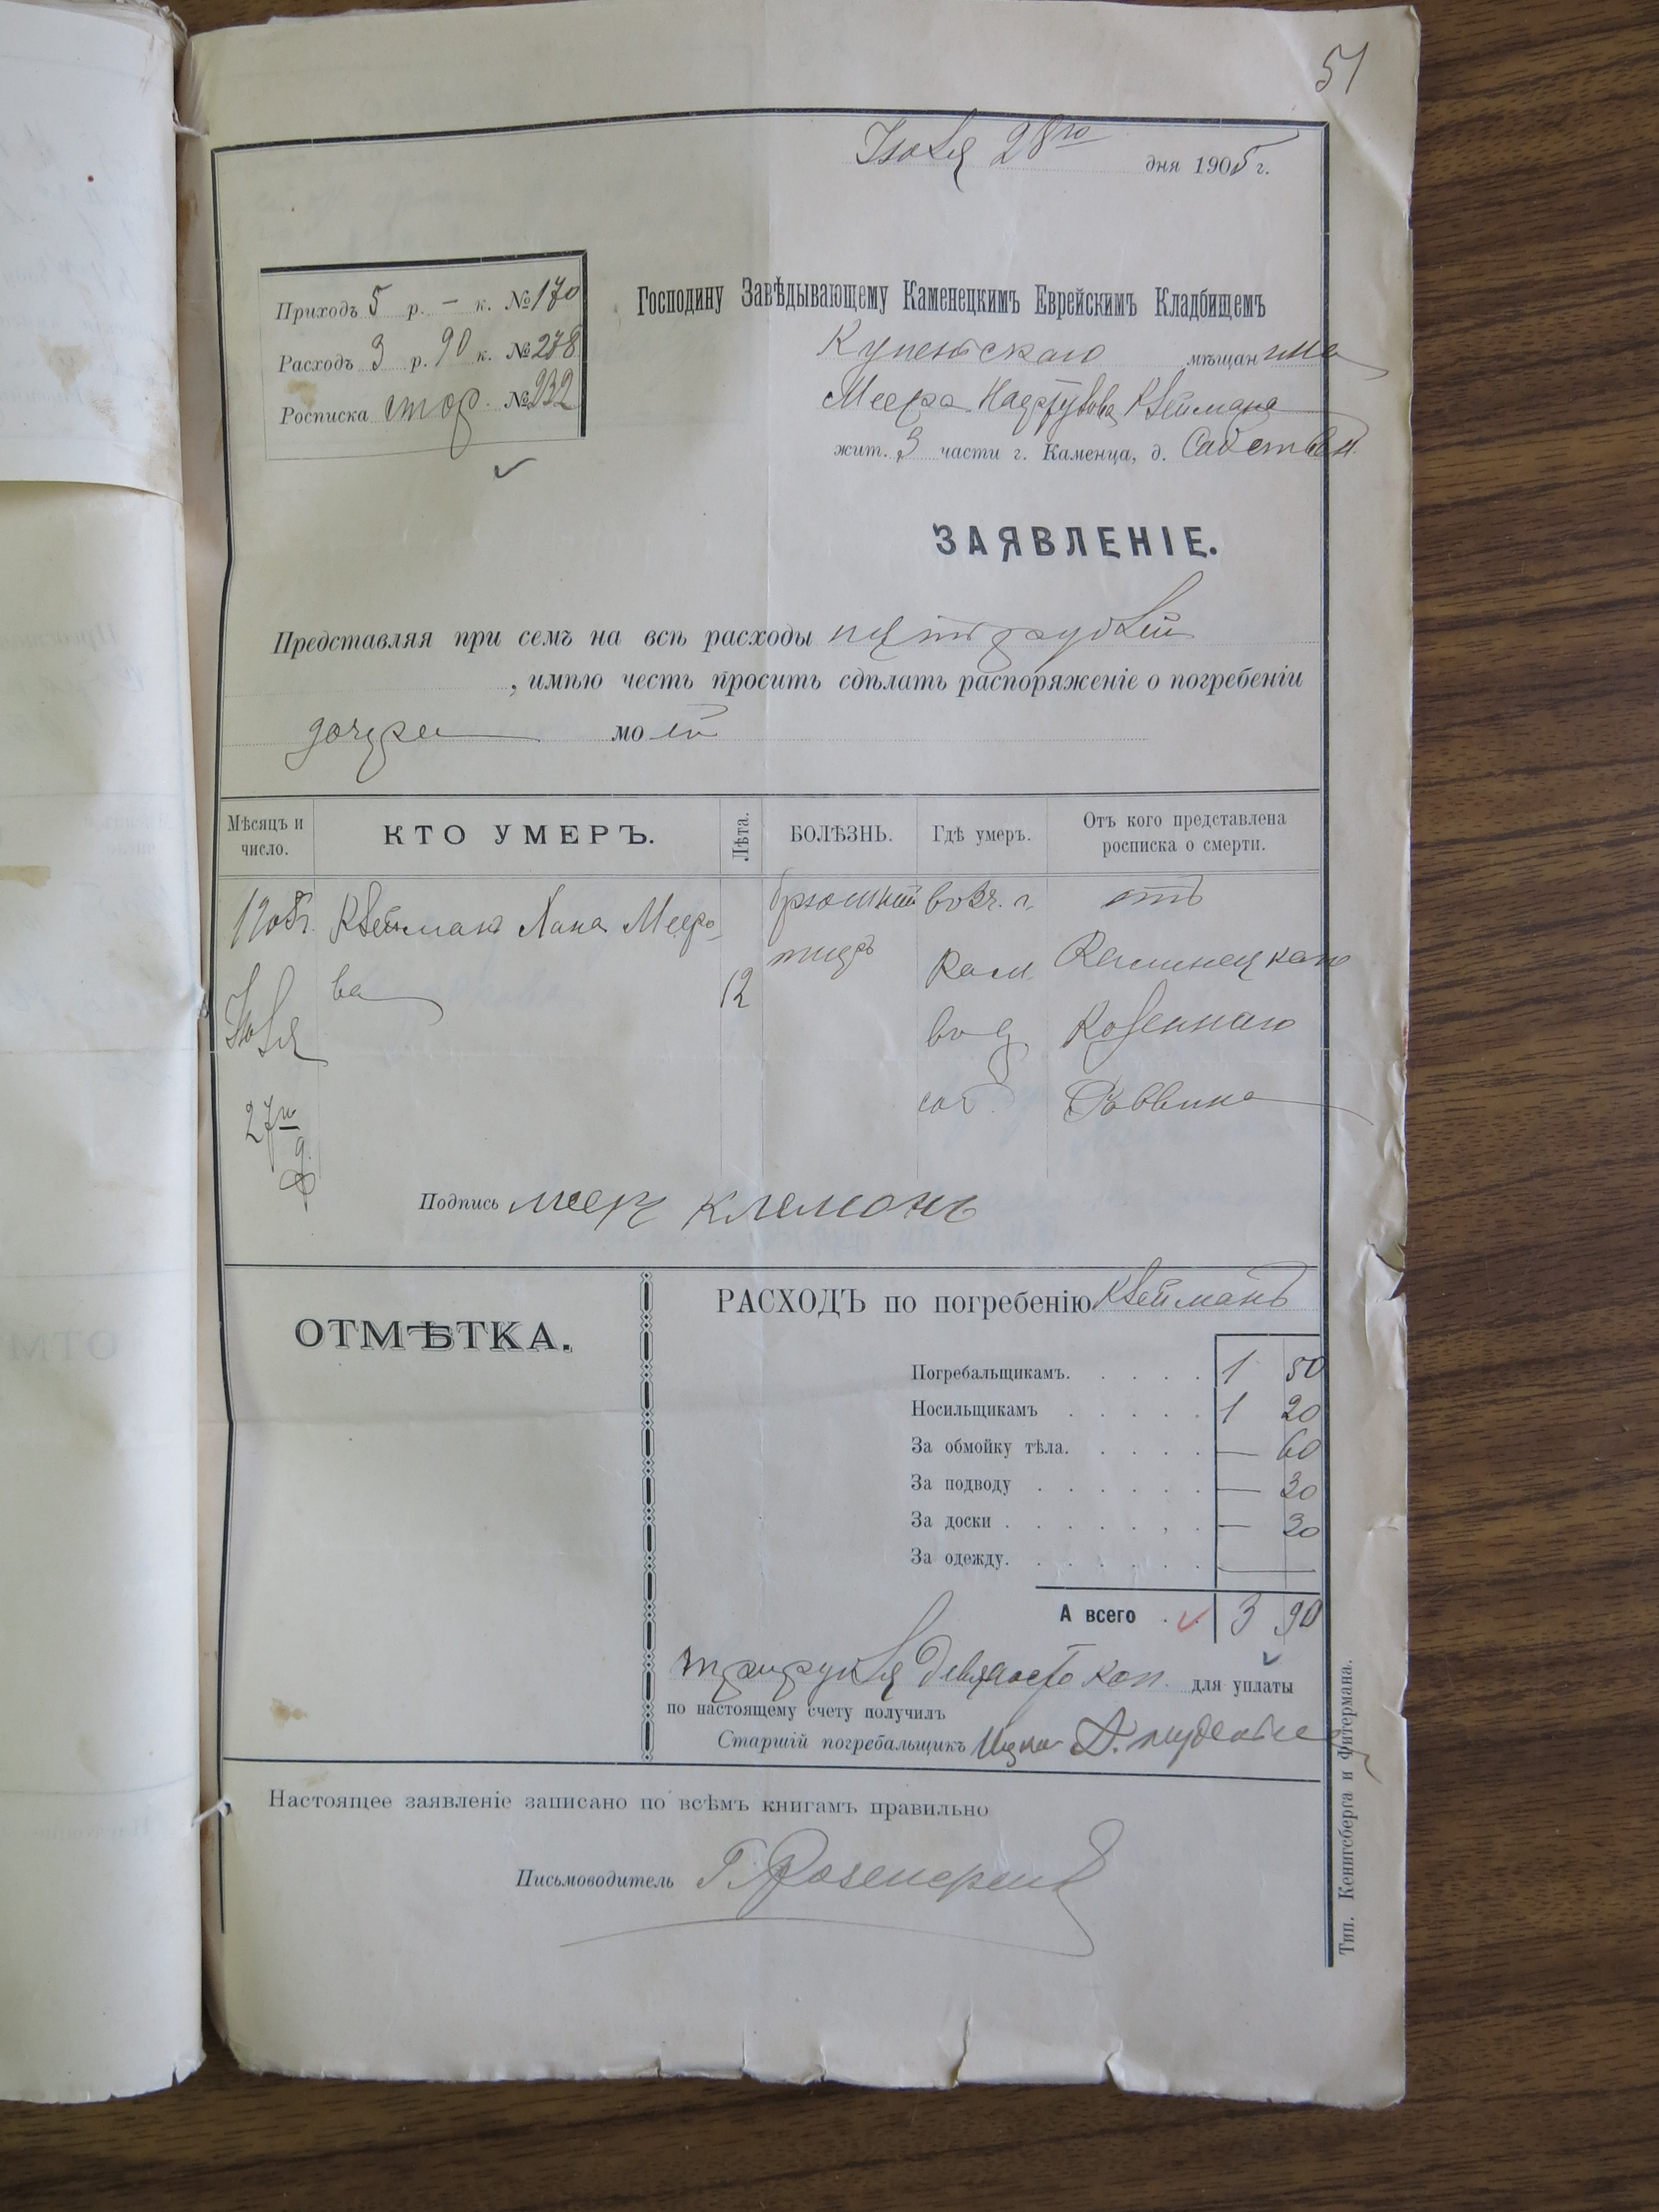 51
Іюля 28го дня 1905 г.
Приходъ 5 р. – к. № 170
Расходъ 3 р. 90 к. № 278
Росписка стор. № 232
Господину Завѣдывающему Каменецкимъ Еврейскимъ Кладбищемъ
мѣщанина
Меера Клеймана
жит. 3 части г. Каменца, д.
ЗАЯВЛЕНІЕ.
Представляя при семъ на всѣ расходы пять рублей
, имѣю честь просить сдѣлать распоряженіе о погребеніи
дочери моей
Мѣсяцъ и число.
КТО УМЕРЪ.
Лѣта.
БОЛѢЗНЬ.
Гдѣ умеръ.
Отъ кого представлена росписка о смерти.
1905 г. Клейманъ Хана Мееро- брюшный в 3 ч. г. отъ
ва 12 тифъ Кам. Каменецкаго
Іюля в д. Казеннаго
27го соб. Раввина
д.
Подпись меер клемонъ
ОТМѢТКА.
РАСХОДЪ по погребенію Клейманъ
Погребальщикамъ. . . . . 1 50
Носильщикамъ . . . . . 1 20
За обмойку тѣла. . . . . — 60
За подводу . . . . . . — 30
За доски . . . . . , . — 30
За одежду. . . . . . . —
А всего . . 3 90
три рубля девяносто коп. для уплаты
по настоящему счету получилъ
Старшій погребальщикъ Ицко
Настоящее заявленіе записано по всѣмъ книгамъ правильно
Письмоводитель Г.
Тип. Кенигсберга и Фитермана.